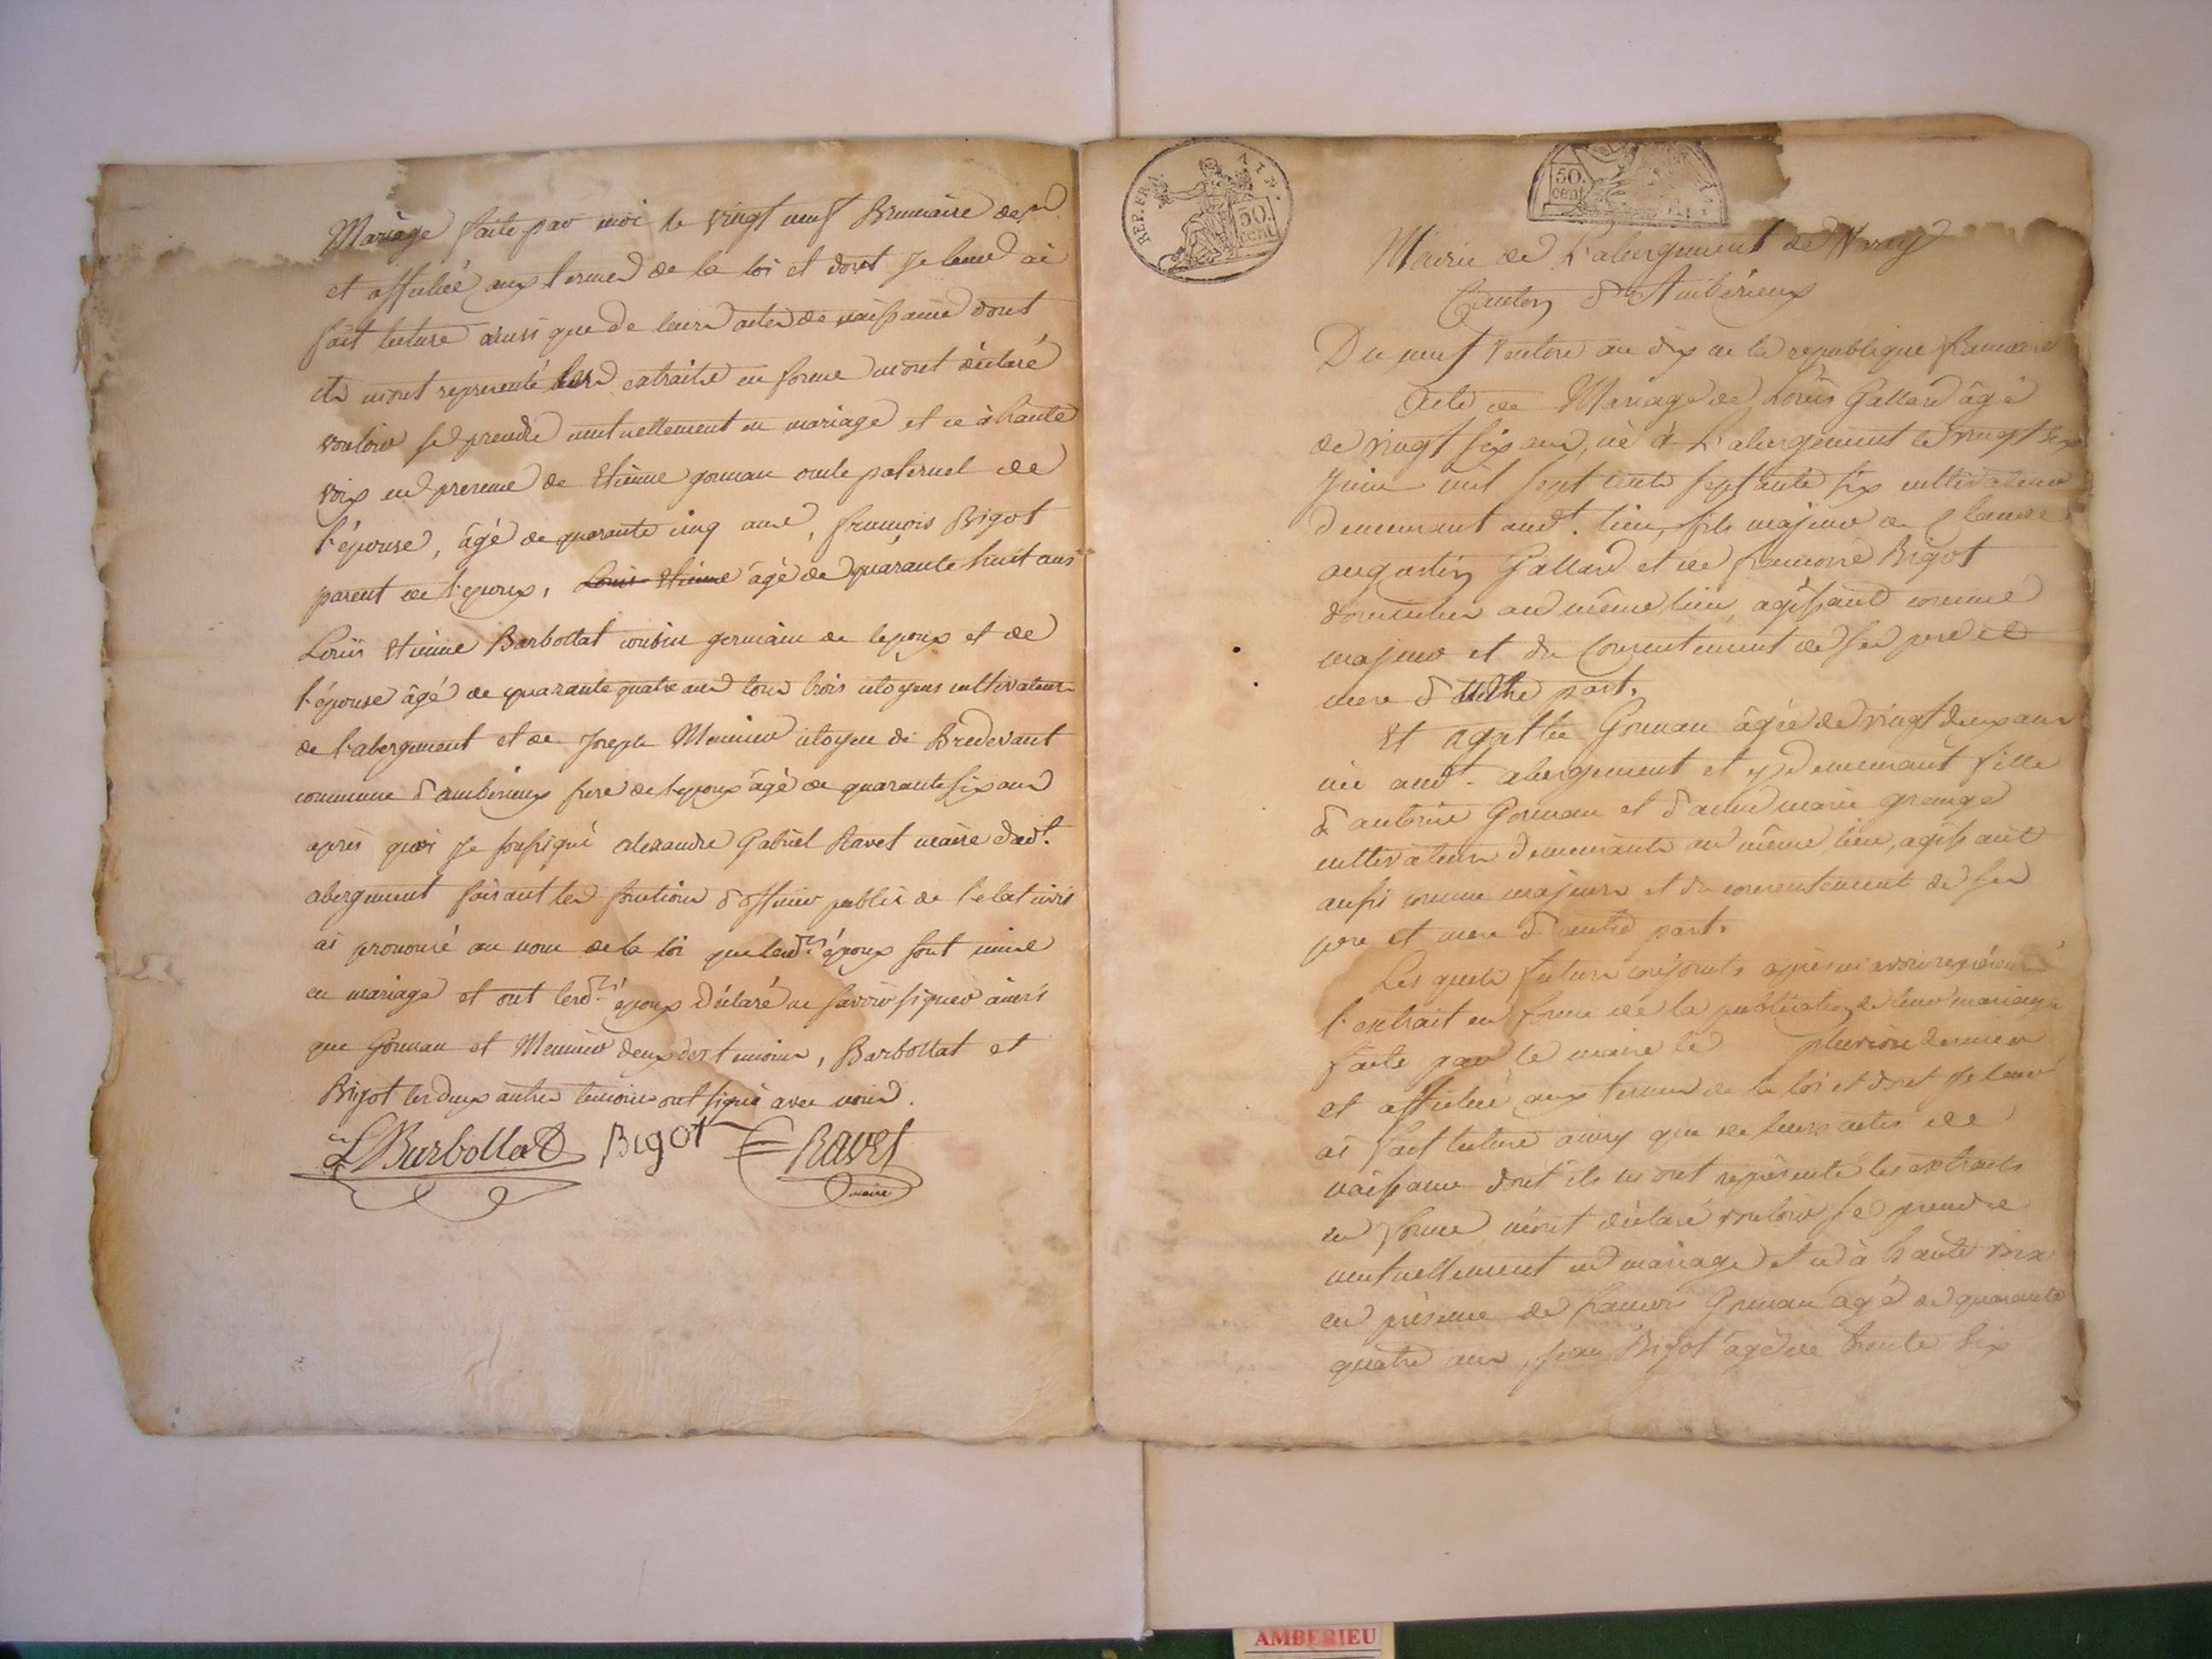 Mariage faite par moi le vingt neuf Brumaire der
et affichée aux termes de la loi et dont Je leur ai
fait lecture ainsi que de leurs actes de naissance dont
ils m'ont representé les extraits en forme m'ont déclaré
vouloir se prendre mutuellement en mariage et ce à haute
voix en presence de Etienne gonnan oncle paternel de
l'épouse, âgé de quarante cinq ans, françois Bigot
parent de l'epoux, Louis Etienne âgé de quarante huit ans
Louis Etienne Barbollat cousin germain de lepoux et de
l'épouse âgé de quarante quatre ans tous trois citoyens cultivateurs
de l'abergement et de Joseph Meunier citoyen de Bredevant
commune d'ambérieux frere de l'epoux âgé de quarante six ans
après quoi Je soussigné alexandre Gabriel Ravet maire dudt.
abergement faisant les fonctions d'officier public de l'etat civil
ai prononcé au nom de la loi que lesdts époux sont unis
en mariage et ont lesdts époux déclaré ne savoir signer ainsi
que Gonnan et Meunier deux des temoins, Barbollat et
Bigot les deux autres temoins ont signé avec nous.
L Barbollat Bigot Ravet
maire
REP. FRA. AIN.
50. cent
50. cent
Mairie de L'abergement de Varey
Canton d'Ambérieux
Du neuf Ventose an dix de la republique francaise
Acte de Mariage de Louis Gallard âgé
de vingt six ans, né à L'abergement le vingt six
Juin mil sept cents septante six cultivateur
demeurant audt. lieu, fils majeur de Claude
augustin Gallard et de francoise Bigot
domiciliés au même lieu agissant comme
majeur et du consentement de ses pere et
mere d'une part,
Et agathe Gonnan âgée de vingt deux ans
née audt. abergement et y demeurant fille
d'antoine Gonnan et d'anne marie grange
cultivateurs demeurants au même lieu, agissant
aussi comme majeure et du consentement de ses
pere et mere d'autre part,
Les quels futurs conjoints après m'avoir représenté
l'extrait en forme de la publication de leur mariage
faite par le maire le pluviose dernier
et affichée aux termes de la loi et dont Je leur
ai fait lecture ainsy que de leurs actes de
naissance dont ils m'ont représenté les extraits
en forme m'ont déclaré vouloir se prendre
mutuellement en mariage et ce à haute voix
en présence de francois Gonnan âgé de quarante
quatre ans, Jean Bigot âgé de trente six
AMBERIEU